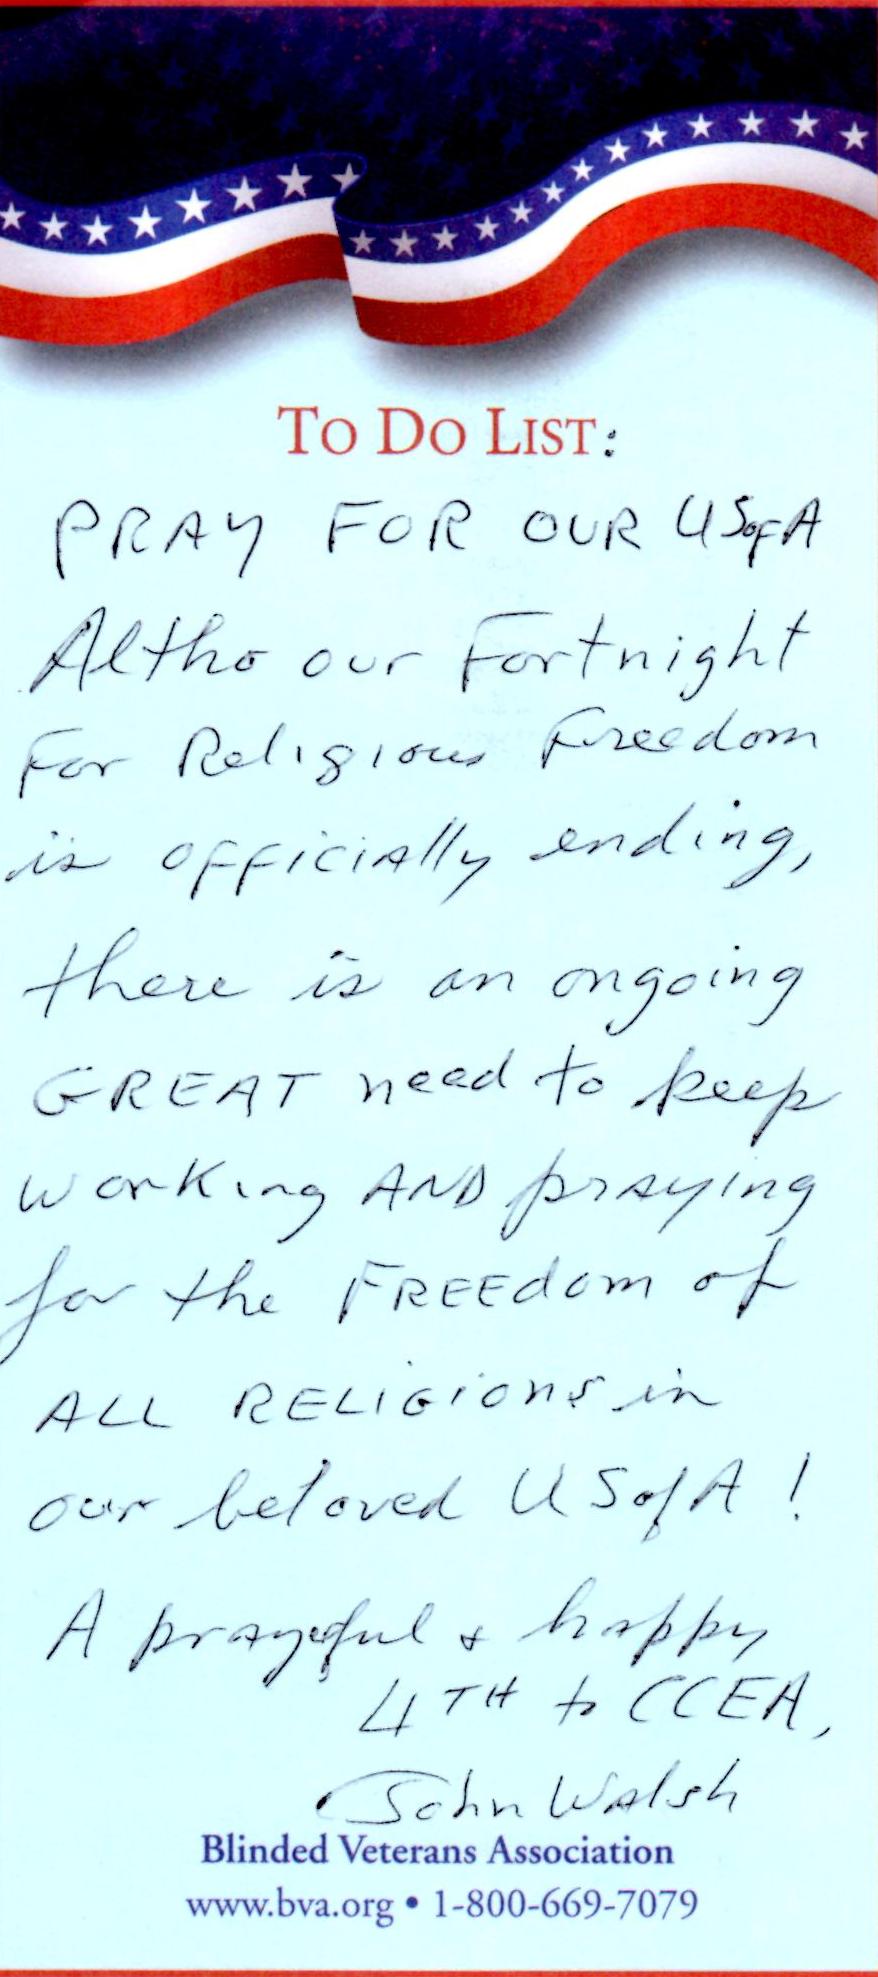 TO DO LIST:
PRAY FOR OUR USofA
Altho our Fortnight
For Religious Freedom
is officially ending,
there is an ongoing
GREAT need to keep
working AND praying
for the FREEdom of
ALL RELIGIONS in
our beloved USofA!
A prayerful & happy
4TH to CCEA,
John Walsh
Blinded Veterans Association
www.bva.org • 1-800-669-7079